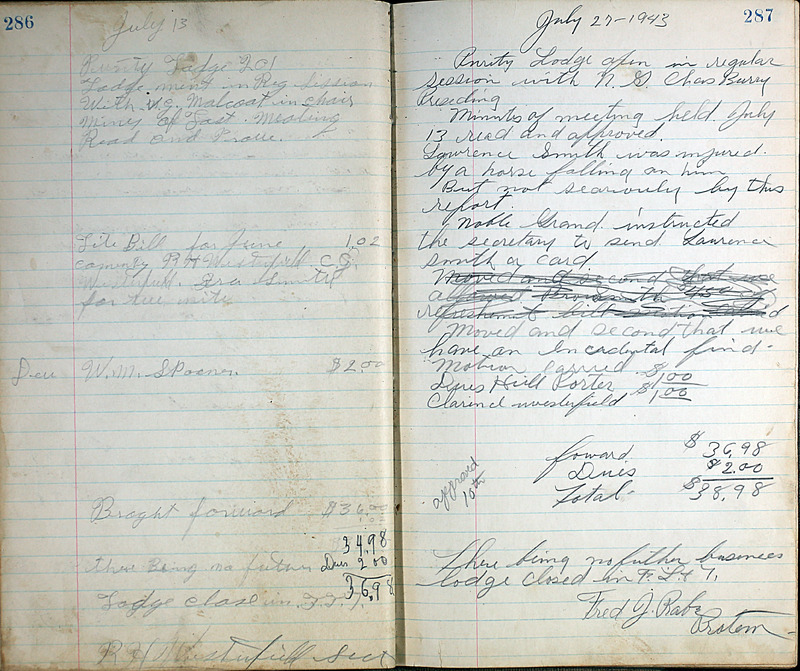 286
July 13
Lodge 201
Lodge in Reg Session
With V.G. Malcoat in chair
of Last Meating
Read and
Lite Bill for June 1.02
R H Westerfield C.G.
Westerfield. Smith
for
Dew W.M. Spooner. $2.00
Broght forward $36.00
34.98
There Being no futur Dues 2 00
36,98
Lodge close in F.L.T.
R H Westerfield Sect
287
July 27-1943
Purity Lodge open in regular
session with N. G Chas Burry
Presiding
Minutes of meeting held July
13 read and approved.
Lawrence Smith was injured.
by a horse falling on him
But not seariously by this
report.
Noble Grand instructed
the secretary to send Lawrence
Smith a card
Moved and second that we
refreshments bill
Moved and second that we
have an Incadental find-
Motion carried
Dues Hull Porter $1.00
Clarence Westerfield $1.00
foward $36.98
Dues $2.00
Total- $38.98
10th
There being no futher business
lodge closed in F. L & T.
Fred J. Rabe
Protem-